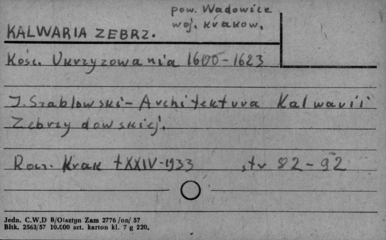 pow. Wadowice
woj. Krakow.
KALWARIA ZEBRZ.
Kośc. Ukrzyzowania 1600-1623
J. Szablowski - Architektura Kalwarii
Zebrzydowskiej.
Rocz. Krak t XXIV-1933 , str 82-92
Jedn. C.W.D B/Olsztyn Zam 2776 /on/ 57
Bltk. 2563/57 10.000 szt. karton kl. 7 g 220.